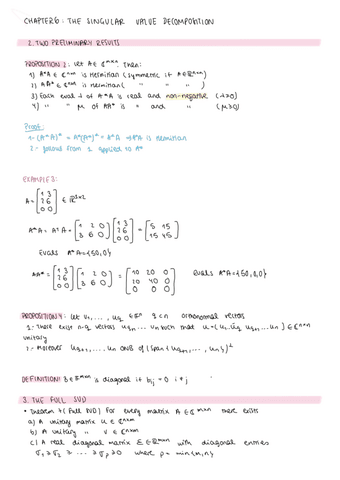 CHAPTER 6: THE SINGULAR VALUE DECOMPOSITION
2. TWO PRELIMINARY RESULTS
PROPOSITION 2: Let A ∈ ℂ^{m×n}. Then:
1) A*A ∈ ℂ^{n×n} is Hermitian (symmetric if A ∈ ℝ^{m×n})
2) AA* ∈ ℂ^{m×m} is Hermitian ( " " " )
3) Each eval λ of A*A is real and non-negative (λ≥0)
4) " " μ of AA* is " and " (μ≥0)
Proof:
1- (A*A)* = A*(A*)* = A*A ⇒ A*A is Hermitian
2- follows from 1 applied to A*
EXAMPLE 3:
A = [1 3; 2 6; 0 0] ∈ ℝ^{3×2}
A*A = A^T A = [1 2 0; 3 6 0] [1 3; 2 6; 0 0] = [5 15; 15 45]
Evals A*A = {50, 0}
AA* = [1 3; 2 6; 0 0] [1 2 0; 3 6 0] = [10 20 0; 20 40 0; 0 0 0] Evals A*A = {50, 0, 0}
PROPOSITION 4: Let u₁, ..., u_q ∈ ℂⁿ q<n orthonormal vectors
1- There exist n-q vectors u_{q+1} ... u_n such that U = [u₁ ... u_q u_{q+1} ... u_n] ∈ ℂ^{n×n}
unitary
2- Moreover u_{q+1}, ..., u_n ONB of (span{u_{q+1}, ..., u_n})^⊥
DEFINITION: B ∈ ℝ^{m×n} is diagonal if b_{ij} = 0 i ≠ j
3. THE FULL SVD
• Theorem 7 (Full SVD) For every matrix A ∈ ℂ^{m×n} there exists
a) A unitary matrix U ∈ ℂ^{m×m}
b) A unitary " V ∈ ℂ^{n×n}
c) A real diagonal matrix Σ ∈ ℝ^{m×n} with diagonal entries
σ₁ ≥ σ₂ ≥ ... ≥ σ_p ≥ 0 where p = min{m,n}